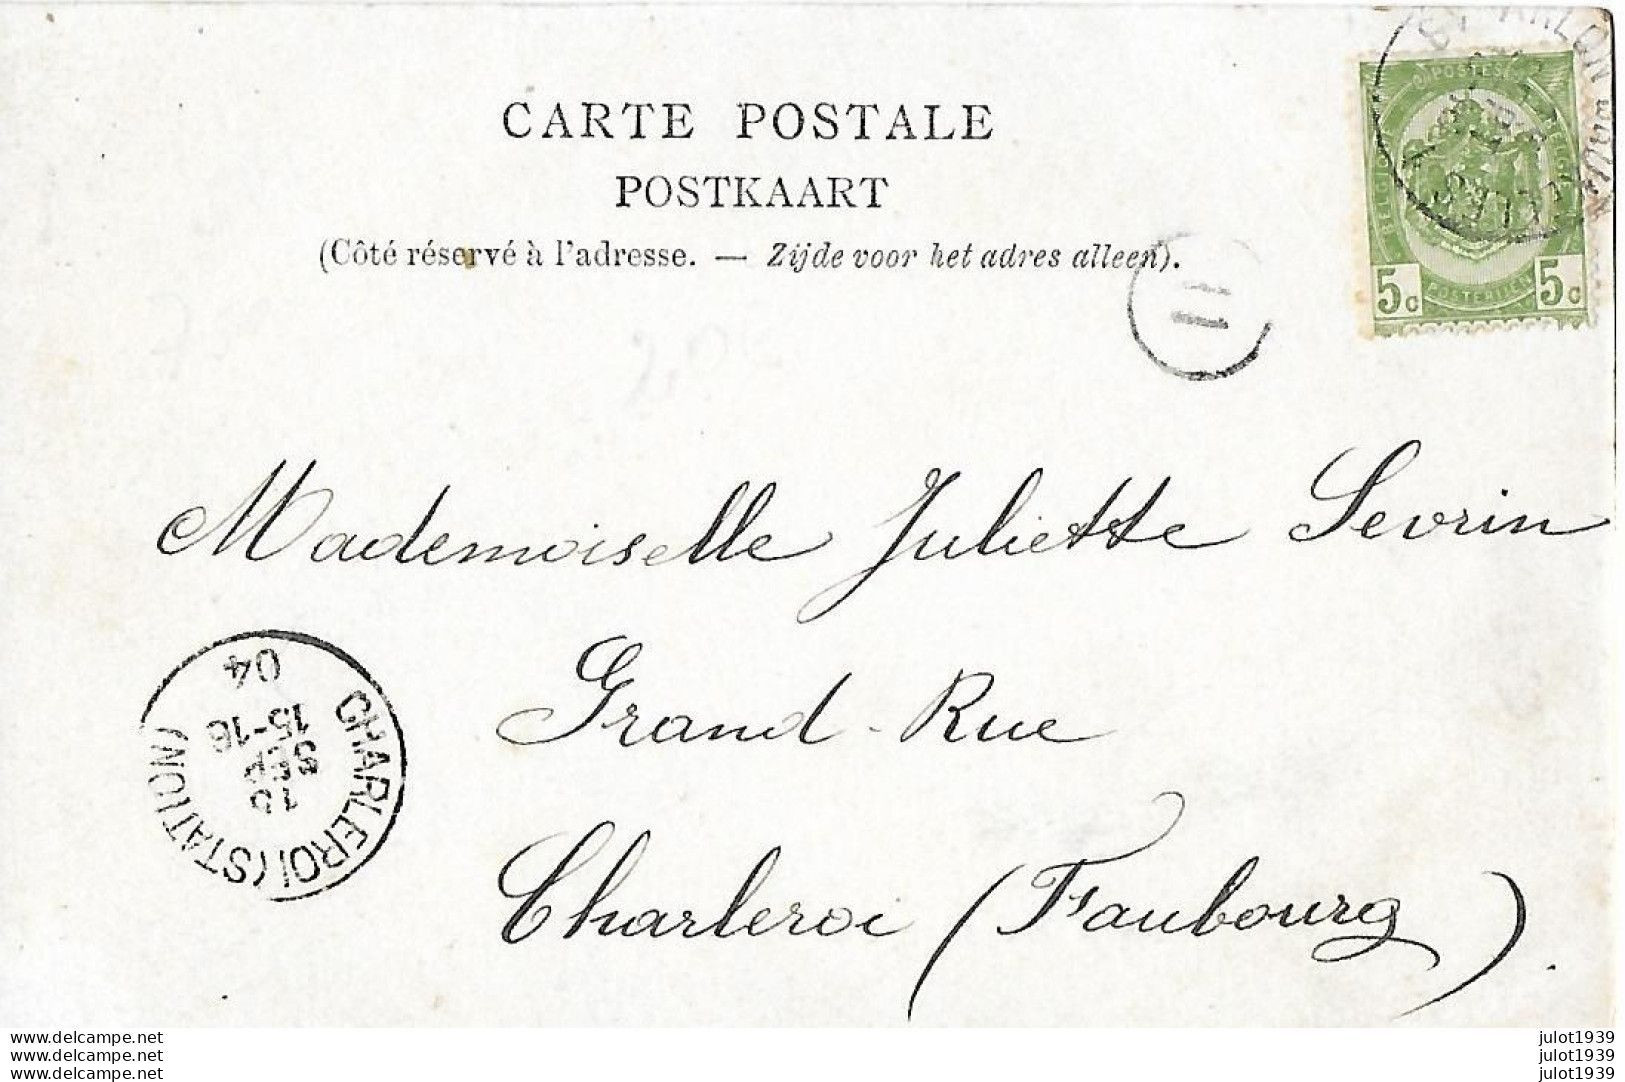 CARTE POSTALE
POSTKAART
(Côté réservé à l'adresse. — Zijde voor het adres alleen).
ARLON
POSTES
BELGIQUE
5c 5c
POSTERIJEN
11
Mademoiselle Juliette Sevrin
Grand-Rue
Charleroi (Faubourg).
CHARLEROI (STATION)
15-16
04
www.delcampe.net julot1939
www.delcampe.net julot1939
www.delcampe.net julot1939